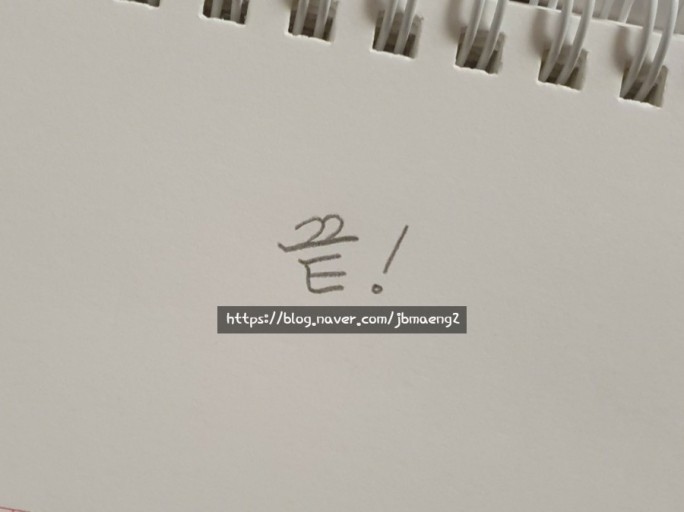 끝!
https://blog.naver.com/jbmaeng2